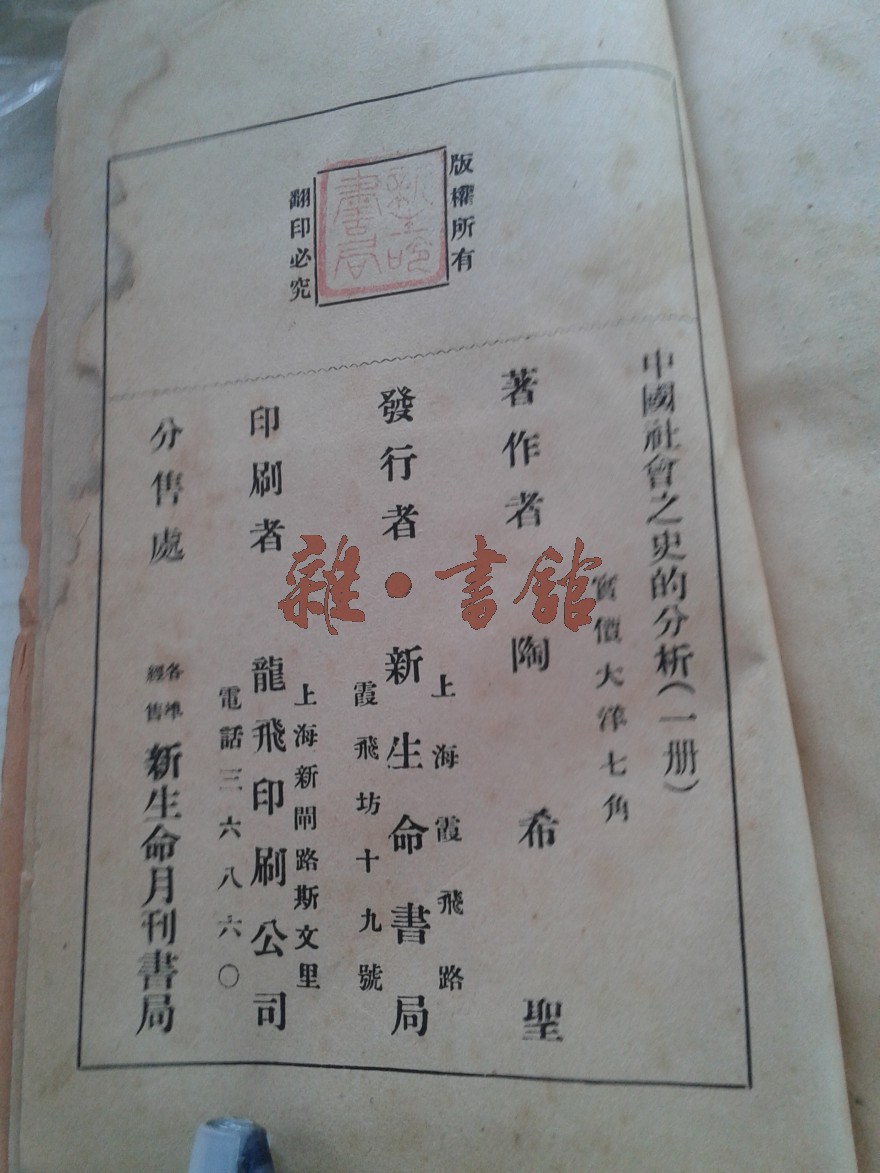 版權所有
新生命書局
翻印必究
中國社會之史的分析(一册)
實價大洋七角
著作者 陶希聖
上海霞飛路
發行者 新生命書局
霞飛坊十九號
上海新閘路斯文里
印刷者 龍飛印刷公司
電話三六八六〇
各埠
經售
分售處 新生命月刊書局
雜·書館